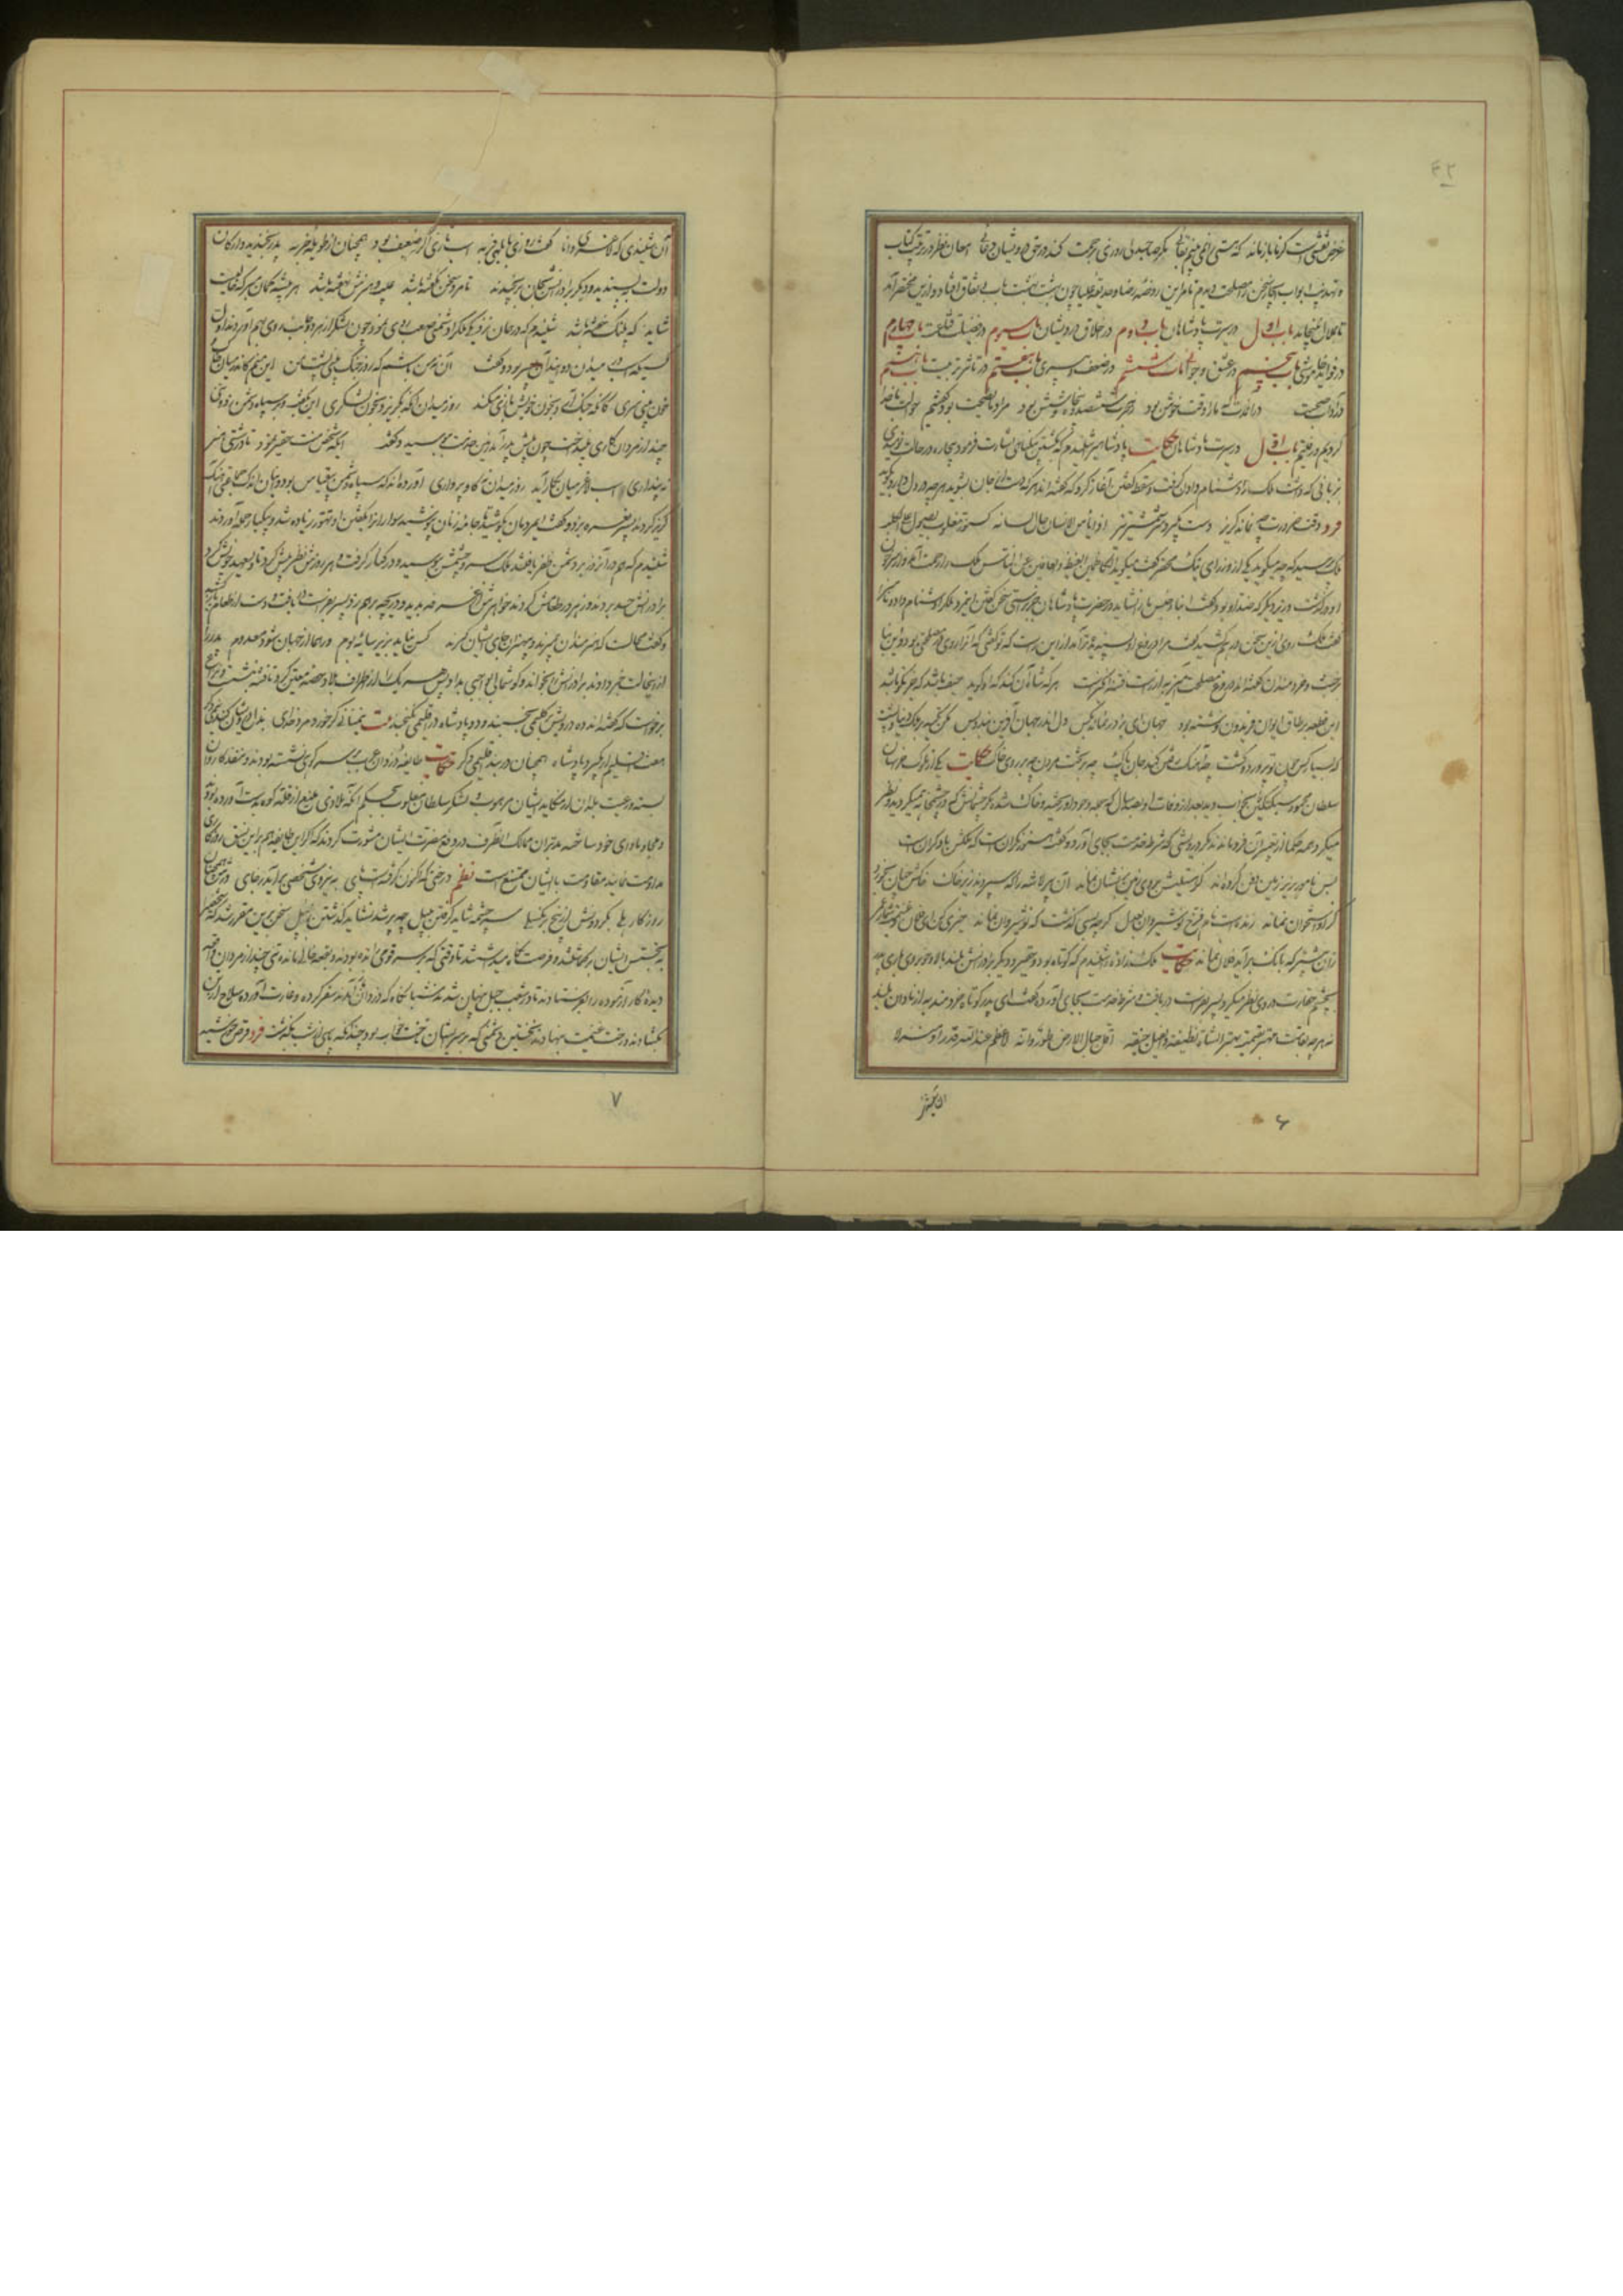 ۴۲
غرض نقشیست کز ما باز ماند که هستی را نمی بینم بقائی مگر صاحبدلی روزی برحمت کند در حق درویشان دعائی امعان نظر در ترتیب کتاب
و تهذیب ابواب ایجاز سخن را مصلحت دیدم تا مر این روضه رضا و حدیقه علیا چون بهشت بهشت باب اتفاق افتاد و ازین مختصر آمد
تا بملال نینجامد باب اول در سیرت پادشاهان باب دوم در اخلاق درویشان باب سیوم در فضیلت قناعت باب چهارم
در فواید خاموشی باب پنجم در عشق و جوانی باب ششم در ضعف و پیری باب هفتم در تاثیر تربیت باب هشتم
در آداب صحبت در آن مدت که ما را وقت خوش بود ز هجرت ششصد و پنجاه و شش بود مراد ما نصیحت بود و گفتیم حوالت با خدا
کردیم و رفتیم باب اول در سیرت پادشاهان حکایت پادشاهی را شنیدم که بکشتن بیگناهی اشارت فرمود بیچاره در حالت نومیدی
بزبانی که داشت ملک را دشنام دادن گرفت و سقط گفتن آغاز کرد که گفته اند هر که دست از جان بشوید هر چه در دل دارد بگوید
فرد وقت ضرورت چو نماند گریز دست بگیرد سر شمشیر تیز اذا یئس الانسان طال لسانه کسنور مغلوب یصول علی الکلب
ملک پرسید که چه میگوید یکی از وزرای نیک محضر گفت میگوید والکاظمین الغیظ والعافین عن الناس ملک را رحمت آمد و از سر خون
او درگذشت وزیر دیگر که ضد او بود گفت ابنای جنس ما را نشاید در حضرت پادشاهان جز راستی سخن گفتن این مرد ملک را دشنام داد و ناسزا
گفت ملک روی ازین سخن درهم کشید و گفت مرا دروغ او پسندیده تر آمد ازین راست که تو گفتی که آنرا روی در مصلحتی بود و این بنا
بر خبث و خردمندان گفته اند دروغ مصلحت آمیز به از راست فتنه انگیز هر که شاه آن کند که او گوید حیف باشد که جز نکو باشد
این قطعه بر طاق ایوان فریدون نوشته بود جهان ای برادر نماند بکس دل اندر جهان آفرین بند و بس مکن تکیه بر ملک دنیا و پشت
که بسیار کس چون تو پرورد و کشت چو آهنگ رفتن کند جان پاک چه بر تخت مردن چه بر روی خاک حکایت یکی از ملوک خراسان
سلطان محمود سبکتگین را بخواب دید بعد از وفات او بصد سال که جمله وجود او ریخته و خاک شده مگر چشمانش که در چشمخانه میگردید و نظر
میکرد همه حکما از تعبیر آن فرو ماندند مگر درویشی که شرط خدمت بجای آورد و گفت هنوز نگرانست که ملکش با دگرانست
بس نامور بزیر زمین دفن کرده اند کز هستیش بروی زمین نشان نماند آن پیر لاشه را که سپردند زیر خاک خاکش چنان بخورد
کزو استخوان نماند زنده است نام فرخ نوشیروان بعدل گرچه بسی گذشت که نوشیروان نماند خیری کن ای فلان و غنیمت شمار عمر
زان پیشتر که بانگ برآید فلان نماند حکایت ملک زاده را شنیدم که کوتاه بود و حقیر و دیگر برادرانش بلند بالا و خوبروی باری پدر
بچشم حقارت در وی نظر میکرد پسر بفراست دریافت و شرط خدمت بجای آورد و گفت ای پدر کوتاه خردمند به از نادان بلند
نه هر چه بقامت مهتر بقیمت بهتر الشاة نظیفة والفیل جیفة اقل جبال الارض طور وانه لاعظم عند الله قدرا و منزلا
۶
آن شنیدی که لاغری دانا گفت روزی بابلهی فربه اسب تازی اگر ضعیف بود همچنان از طویله خر به پدر بخندید و ارکان
دولت پسندیدند و دیگر برادرانش بجان برنجیدند تا مرد سخن نگفته باشد عیب و هنرش نهفته باشد هر بیشه گمان مبر که خالیست
شاید که پلنگ خفته باشد شنیدم که در همان نزدیکی ملک را دشمنی صعب روی نمود چون لشکر از هر دو جانب روی بهم آوردند اول
کسی که اسب در میدان دوانید آن پسر بود و گفت آن نه من باشم که روز جنگ بینی پشت من این منم کاندر میان خاک و
خون بینی سری کانکه جنگ آرد بخون خویش بازی میکند روز میدان وانکه بگریزد بخون لشکری این بگفت و بر سپاه دشمن زد و تنی
چند از مردان کاری بینداخت چون پیش پدر آمد زمین خدمت ببوسید و گفت ایکه شخص منت حقیر نمود تا درشتی هنر
نه پنداری اسب لاغر میان بکار آید روز میدان نه گاو پرواری آورده اند که سپاه دشمن بیقیاس بود و اینان اندک جماعتی آهنگ
گریز کردند پسر نعره بزد و گفت ای مردان بکوشید یا جامه زنان بپوشید سواران را بگفتن او تهور زیاده شد و بیکبار حمله آوردند
شنیدم که هم در آنروز بر دشمن ظفر یافتند ملک سر و چشمش ببوسید و در کنار گرفت و هر روزش نظر بیش کرد تا ولیعهد خویش کرد
برادرانش حسد بردند و زهر در طعامش کردند خواهرش از غرفه بدید و دریچه برهم زد پسر بفراست دریافت و دست از طعام باز کشید
و گفت محالست که هنرمندان بمیرند و بیهنران جای ایشان گیرند کس نیاید بزیر سایه بوم ور همای از جهان شود معدوم پدر را
ازین حالت خبر دادند برادرانش را بخواند و گوشمالی بواجبی بداد پس هر یک را از اطراف بلاد حصه معین کرد تا فتنه بنشست و نزاع
برخواست که گفته اند ده درویش در گلیمی بخسبند و دو پادشاه در اقلیمی نگنجند نیم نانی گر خورد مرد خدای بذل درویشان کند نیمی دگر
هفت اقلیم ار بگیرد پادشاه همچنان در بند اقلیمی دگر حکایت طایفه دزدان عرب بر سر کوهی نشسته بودند و منفذ کاروان
بسته و رعیت بلدان از مکاید ایشان مرعوب و لشکر سلطان مغلوب بحکم آنکه ملاذی منیع از قله کوه بدست آورده بودند
و ملجا و ماوای خود ساخته مدبران ممالک آنطرف در دفع مضرت ایشان مشورت کردند که اگر این طایفه هم برین نسق روزگاری
مداومت نمایند مقاومت با ایشان ممتنع است نظم درختی که اکنون گرفتست پای به نیروی شخصی برآید ز جای ورش همچنان
روزگاری هلی بگردونش از بیخ بر نگسلی سر چشمه شاید گرفتن به بیل چو پر شد نشاید گذشتن به پیل سخن برین مقرر شد که یکی
به تجسس ایشان برگماشتند و فرصت نگاه میداشتند تا وقتی که بر سر قومی رانده بودند و بقعه خالی مانده تنی چند از مردان واقعه
دیده کار آزموده را بفرستادند تا در شعب جبل پنهان شدند شبانگاه که دزدان آمدند سفر کرده و غارت آورده سلاح از تن
بگشادند و رخت غنیمت بنهادند نخستین دشمنی که بر سر ایشان تاخت خواب بود چندانکه پاسی از شب بگذشت فرد قرص خورشید
۷